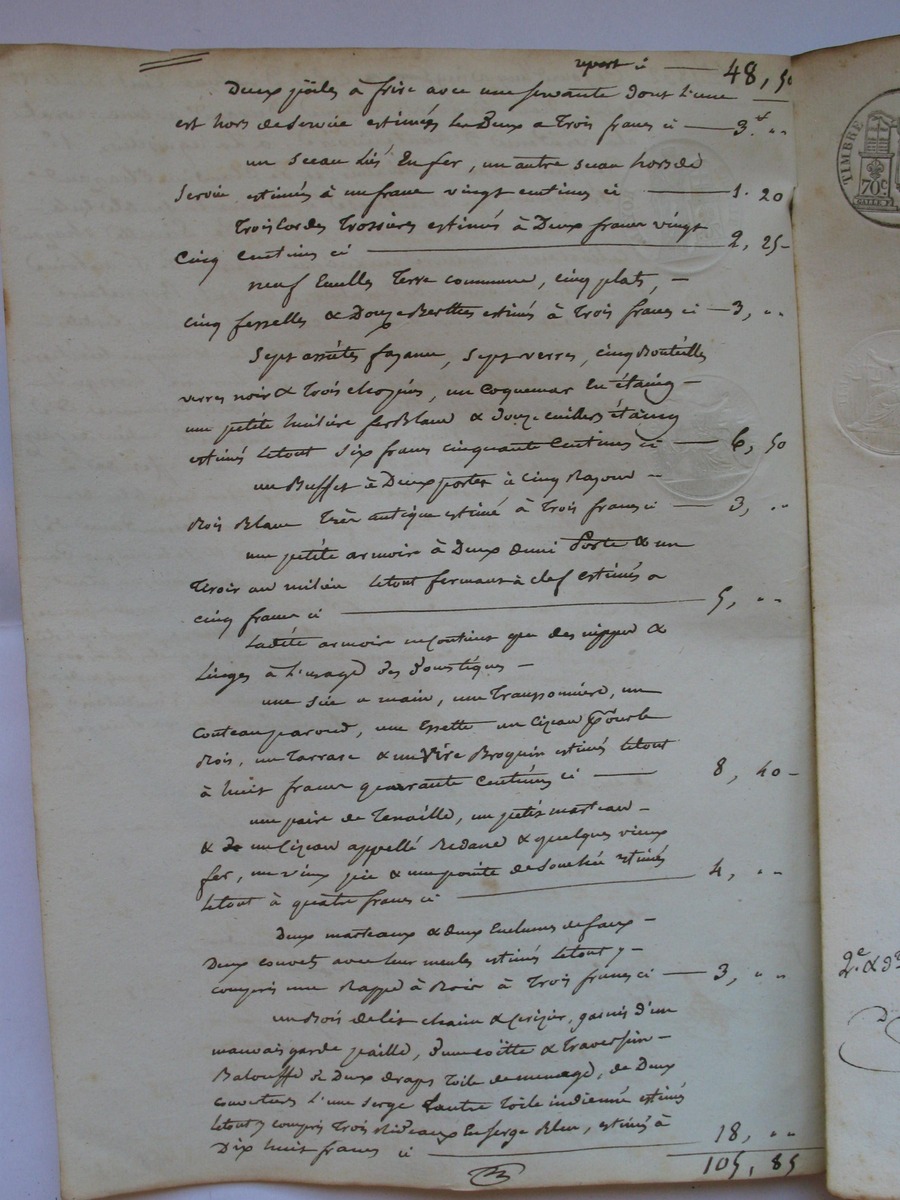 report ci — 48, 50
Deux pöiles à frire avec une servante dont l'une
est hors de service estimées les Deux a Trois francs ci — 3.f "
un sceau liés En fer, un autre seau hors de
Service estimés à un franc vingt centimes ci — 1. 20
Trois Cordes Trossières estimés à Deux francs vingt
Cinq Centimes ci — 2, 25-
neuf Ecuelles Terre commune, cinq plats, -
cinq fesselles & Douze Berthes estimés à Trois francs ci — 3, "
Sept assiétes fayance, Sept verres, cinq Bouteilles
verres noir & Trois chopines, un Coquemar En étaing -
une petite huilière fer Blanc & douze cuillers étaing
estimés letout Six francs cinquante Centimes ci — 6, 50
un Buffet à Deux portes à cinq Rayons -
Bois Blanc Très antique estimé à Trois francs ci — 3, "
une petite armoire à Deux demi Porte & un
Tiroir au milieu letout fermant à clef estimés a
cinq francs ci — 5, "
Ladite armoire ne Contient que des nippes &
Linges à l'usage des Domestiques -
une Sie a main, une Transonnière, un
Couteau parout, une Essette un Cizeau Pour le
Bois, un Tarrare & un Vire Broquin estimés letout
à huit francs quarante Centimes ci — 8, 40-
une paire de Tenaille, un petit marteau -
& un Cizeau appellé Bedane & quelques vieux
fer, un vieux pic & une pointe de Souchée estimés
letout à quatre francs ci — 4, "
Deux marteaux & deux Enclumes de faux -
Deux couvets avec leur meules estimés letout y -
compris une Rappe à Bois à Trois francs ci — 3, "
un Bois de lit chaine & Cerizier, garnis d'un
mauvais garde paille, d'une coëtte & Traversin -
Balouffe de Deux draps Toile de menage, de Deux
couvertures l'une Serge Lautre Toile indienne estimés
letout y compris Trois Rideaux En Serge Bleu, estimés à
Dix huit francs ci — 18, "
105, 85
TIMBRE
70 c.
2.e & d